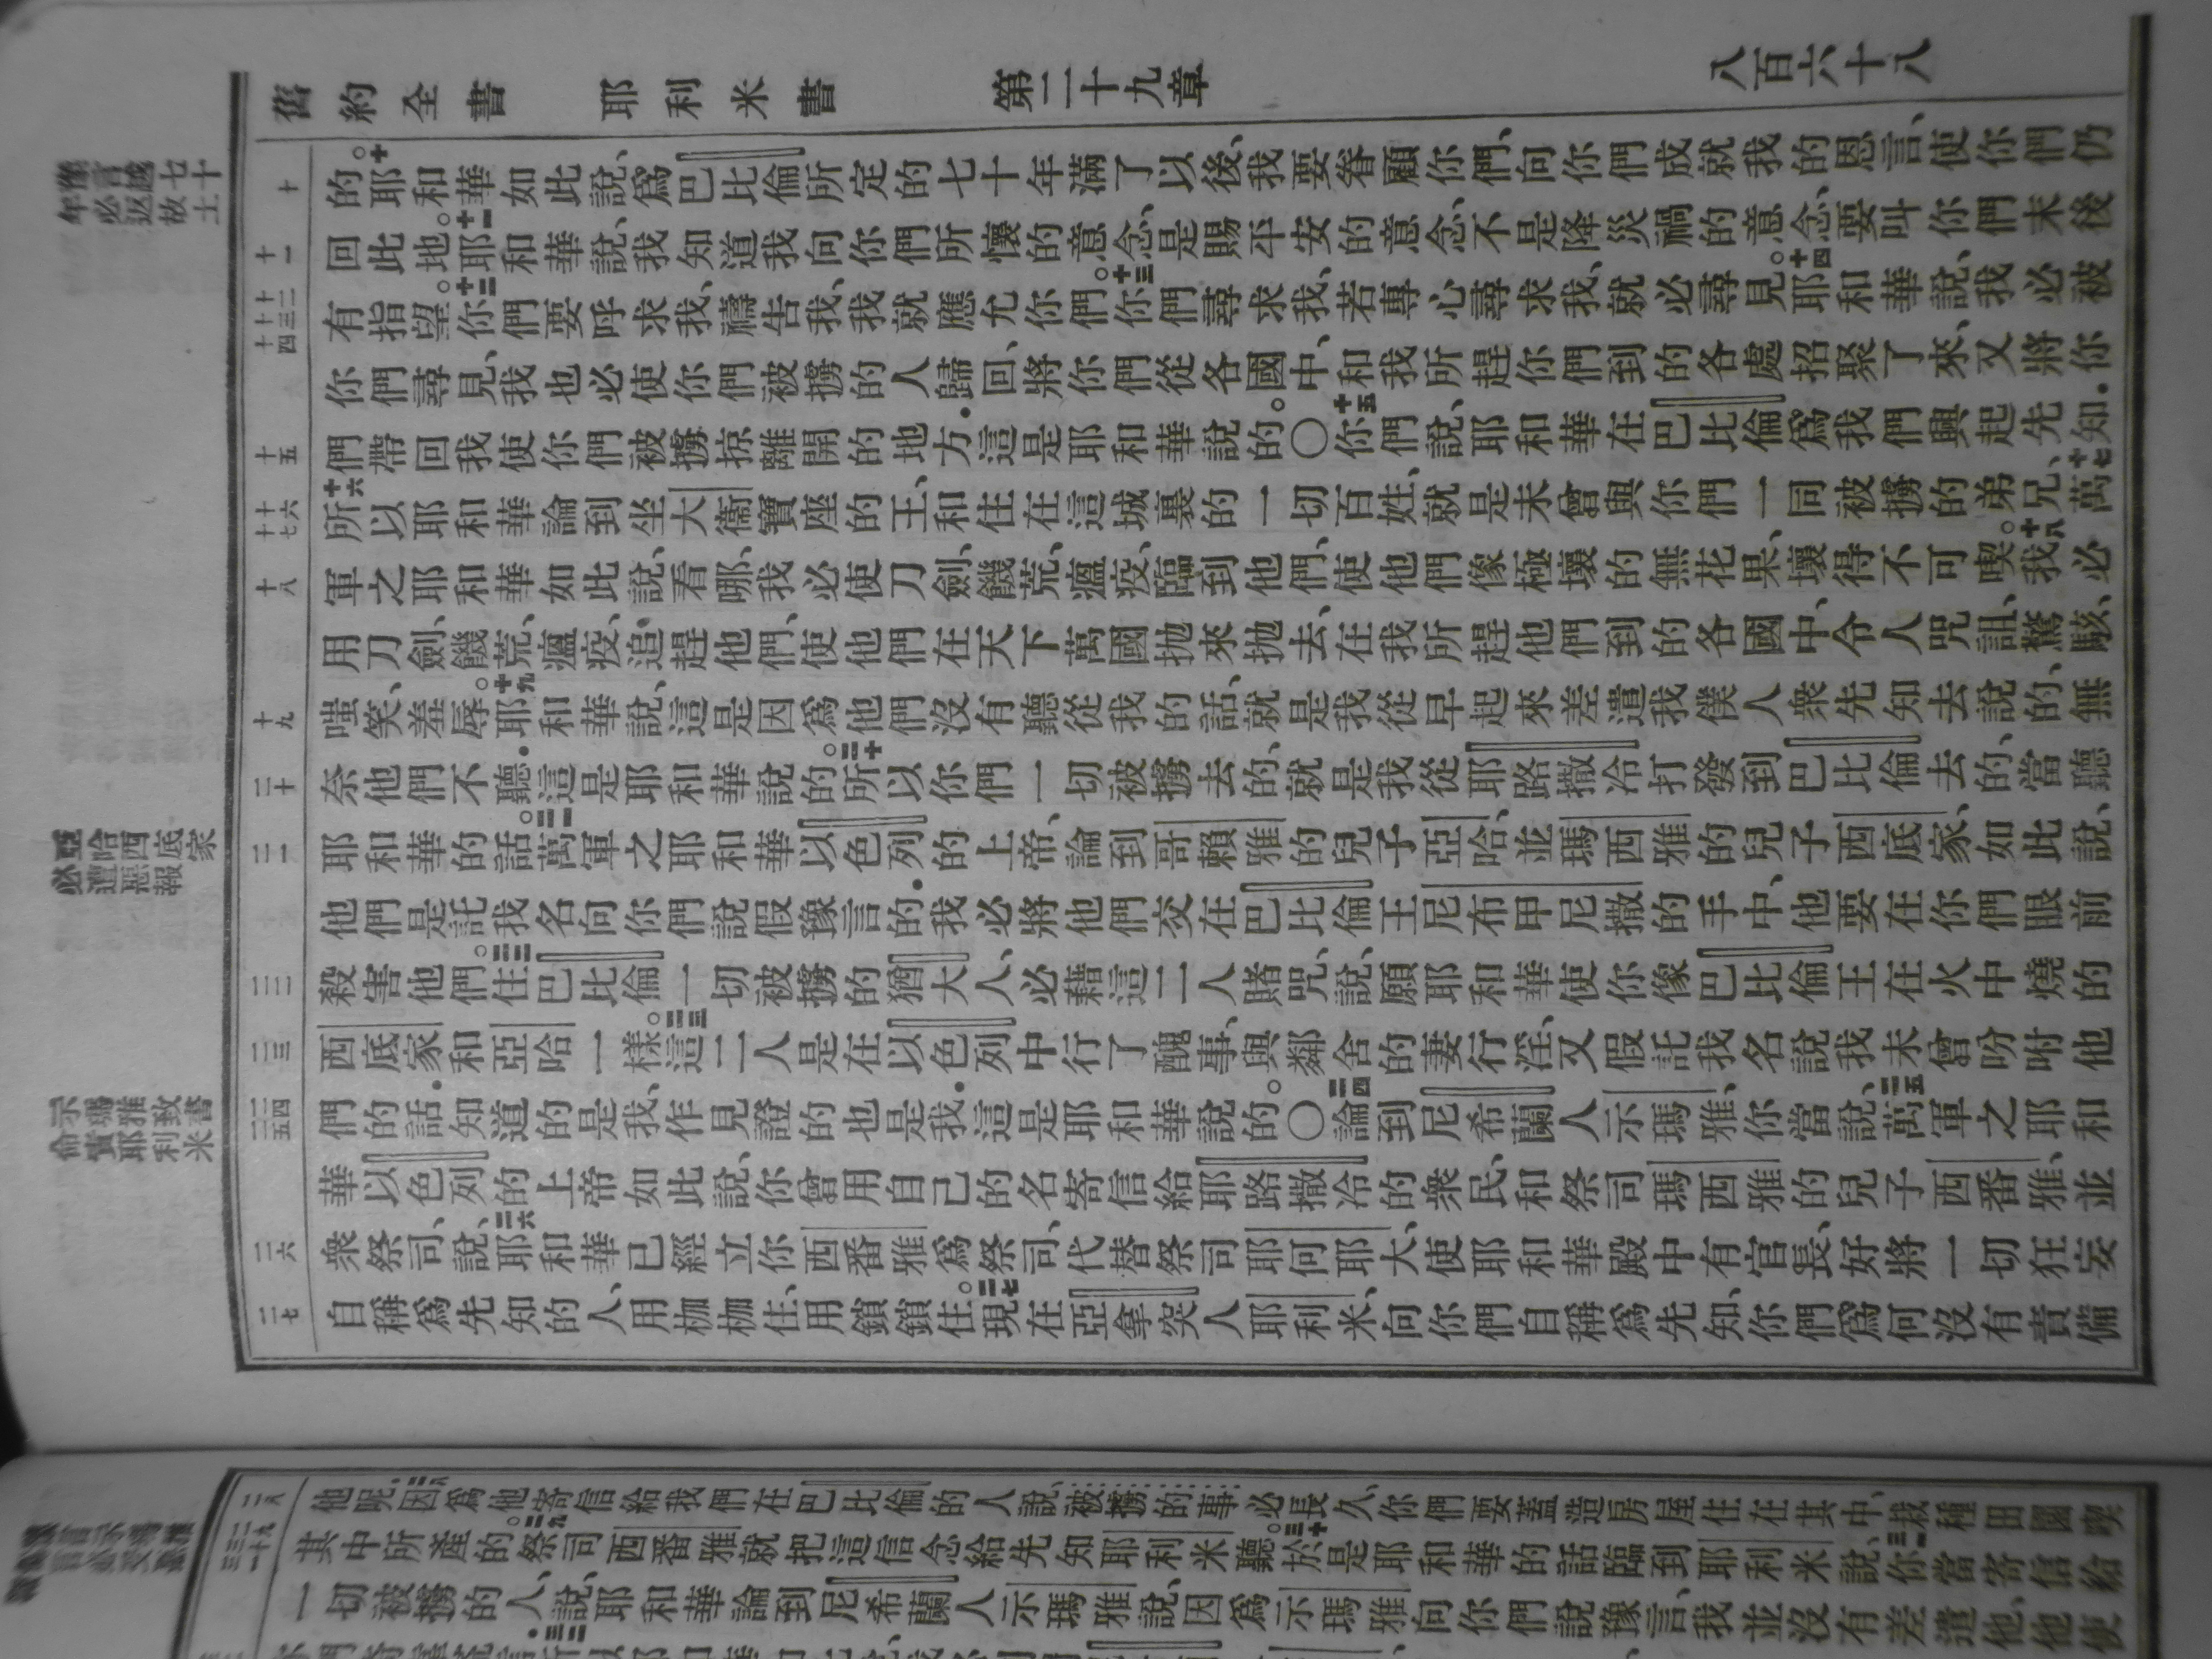 舊約全書 耶利米書 第二十九章 八百六十八
豫言越七十
年必返故土
十
的。十耶和華如此說、爲巴比倫所定的七十年滿了以後、我要眷顧你們、向你們成就我的恩言、使你們仍
十一
回此地。十一耶和華說、我知道我向你們所懷的意念、是賜平安的意念、不是降災禍的意念、要叫你們末後
十二 十三 十四
有指望。十二你們要呼求我、禱告我、我就應允你們。十三你們尋求我、若專心尋求我、就必尋見。十四耶和華說、我必被
你們尋見、我也必使你們被擄的人歸回、將你們從各國中、和我所趕你們到的各處招聚了來、又將你
十五
們帶回我使你們被擄掠離開的地方．這是耶和華說的。〇十五你們說、耶和華在巴比倫爲我們興起先知．
十六 十七
十六所以耶和華論到坐大衞寶座的王、和住在這城裏的一切百姓、就是未曾與你們一同被擄的弟兄、十七萬
十八
軍之耶和華如此說、看哪、我必使刀劍、饑荒、瘟疫、臨到他們、使他們像極壞的無花果、壞得不可喫。十八我必
用刀劍、饑荒、瘟疫、追趕他們、使他們在天下萬國拋來拋去、在我所趕他們到的各國中、令人咒詛、驚駭、
十九
嗤笑、羞辱。十九耶和華說、這是因爲他們沒有聽從我的話、就是我從早起來差遣我僕人衆先知去說的、無
二十
奈他們不聽．這是耶和華說的。二十所以你們一切被擄去的、就是我從耶路撒冷打發到巴比倫去的、當聽
亞哈西底家
必遭惡報
二一
耶和華的話。二一萬軍之耶和華以色列的上帝、論到哥賴雅的兒子亞哈、並瑪西雅的兒子西底家、如此說、
他們是託我名向你們說假豫言的．我必將他們交在巴比倫王尼布甲尼撒的手中、他要在你們眼前
二二
殺害他們。二二住巴比倫一切被擄的猶大人、必藉這二人賭咒、說、願耶和華使你像巴比倫王在火中燒的
二三
西底家和亞哈一樣。二三這二人是在以色列中行了醜事、與鄰舍的妻行淫、又假託我名說我未曾吩咐他
示瑪雅致書
命責耶利米
二四 二五
們的話．知道的是我、作見證的也是我．這是耶和華說的。〇二四論到尼希蘭人示瑪雅、你當說、二五萬軍之耶和
華以色列的上帝如此說、你曾用自己的名寄信給耶路撒冷的衆民、和祭司瑪西雅的兒子西番雅、並
二六
衆祭司、說、二六耶和華已經立你西番雅爲祭司、代替祭司耶何耶大、使耶和華殿中有官長、好將一切狂妄
二七
自稱爲先知的人、用枷枷住、用鎖鎖住。二七現在亞拿突人耶利米、向你們自稱爲先知、你們爲何沒有責備
二八
他呢．二八因爲他寄信給我們在巴比倫的人說、被擄的事必長久、你們要蓋造房屋住在其中、栽種田園喫
二九 三十 三一
其中所產的。二九祭司西番雅就把這信念給先知耶利米聽。三十於是耶和華的話臨到耶利米說、三一你當寄信給
一切被擄的人、說、耶和華論到尼希蘭人示瑪雅說、因爲示瑪雅向你們說豫言、我並沒有差遣他、他使